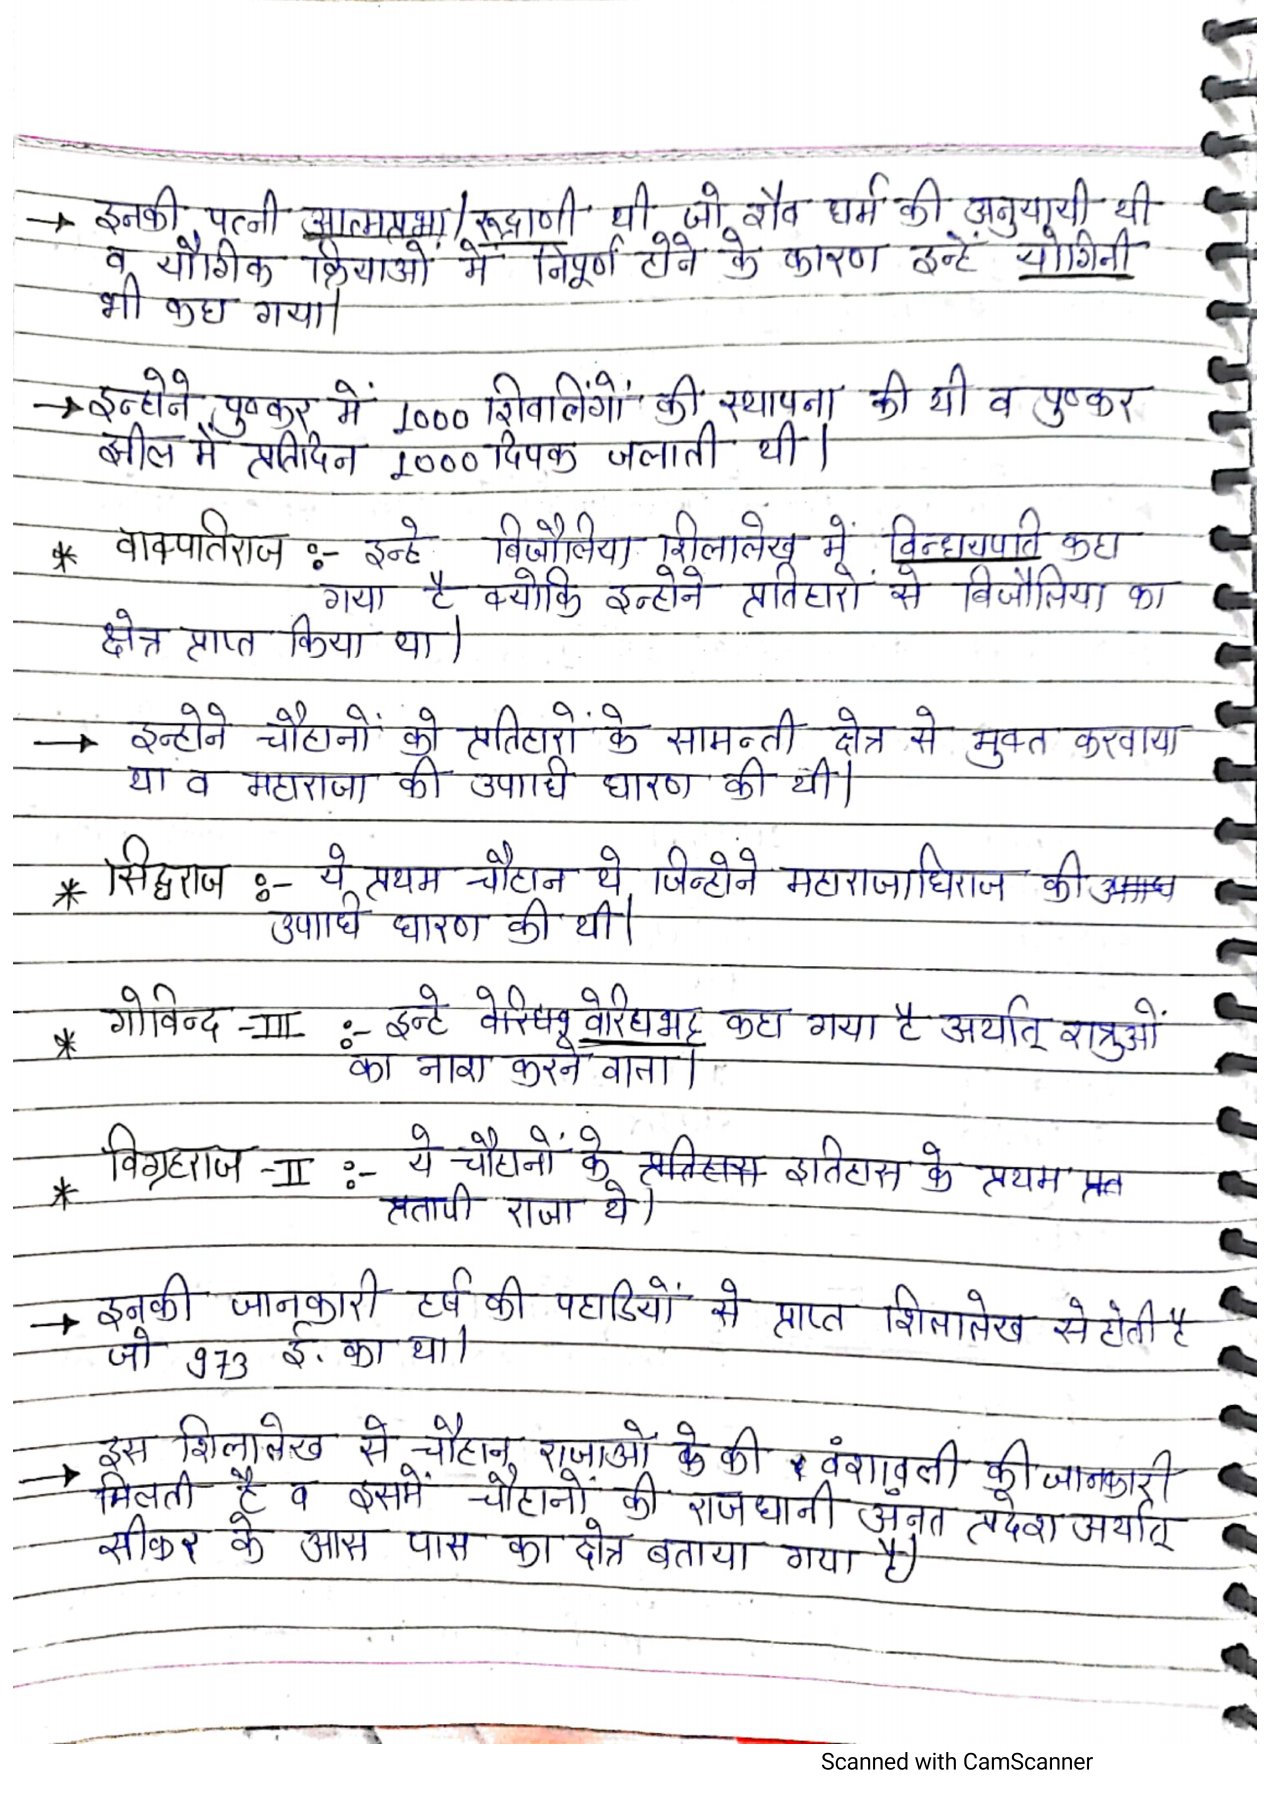 → इनकी पत्नी आत्मप्रभा/रूद्राणी थी जो शैव धर्म की अनुयायी थी
व यौगिक क्रियाओं में निपूर्ण होने के कारण इन्हें योगिनी
भी कहा गया।
→ इन्होने पुष्कर में 1000 शिवलिंगों की स्थापना की थी व पुष्कर
झील में प्रतिदिन 1000 दिपक जलाती थी।
* वाक्पतिराज :- इन्हे बिजौलिया शिलालेख में विन्ध्यपति कहा
गया है क्योकि इन्होने प्रतिहारों से बिजौलिया का
क्षेत्र प्राप्त किया था।
→ इन्होने चौहानों को प्रतिहारों के सामन्ती क्षेत्र से मुक्त करवाया
था व महाराजा की उपाधि धारण की थी।
* सिद्धराज :- ये प्रथम चौहान थे जिन्होने महाराजाधिराज की
उपाधि धारण की थी।
* गोविन्द -III :- इन्हे वेरिधभट्ट कहा गया है अर्थात् शत्रुओं
का नाश करने वाला।
* विग्रहराज -II :- ये चौहानों के इतिहास के प्रथम
प्रतापी राजा थे।
→ इनकी जानकारी हर्ष की पहाडियों से प्राप्त शिलालेख से होती है
जो 973 ई. का था।
→ इस शिलालेख से चौहान राजाओं के की वंशावली की जानकारी
मिलती है व इसमें चौहानों की राजधानी अनत प्रदेश अर्थात्
सीकर के आस पास का क्षेत्र बताया गया है।
Scanned with CamScanner